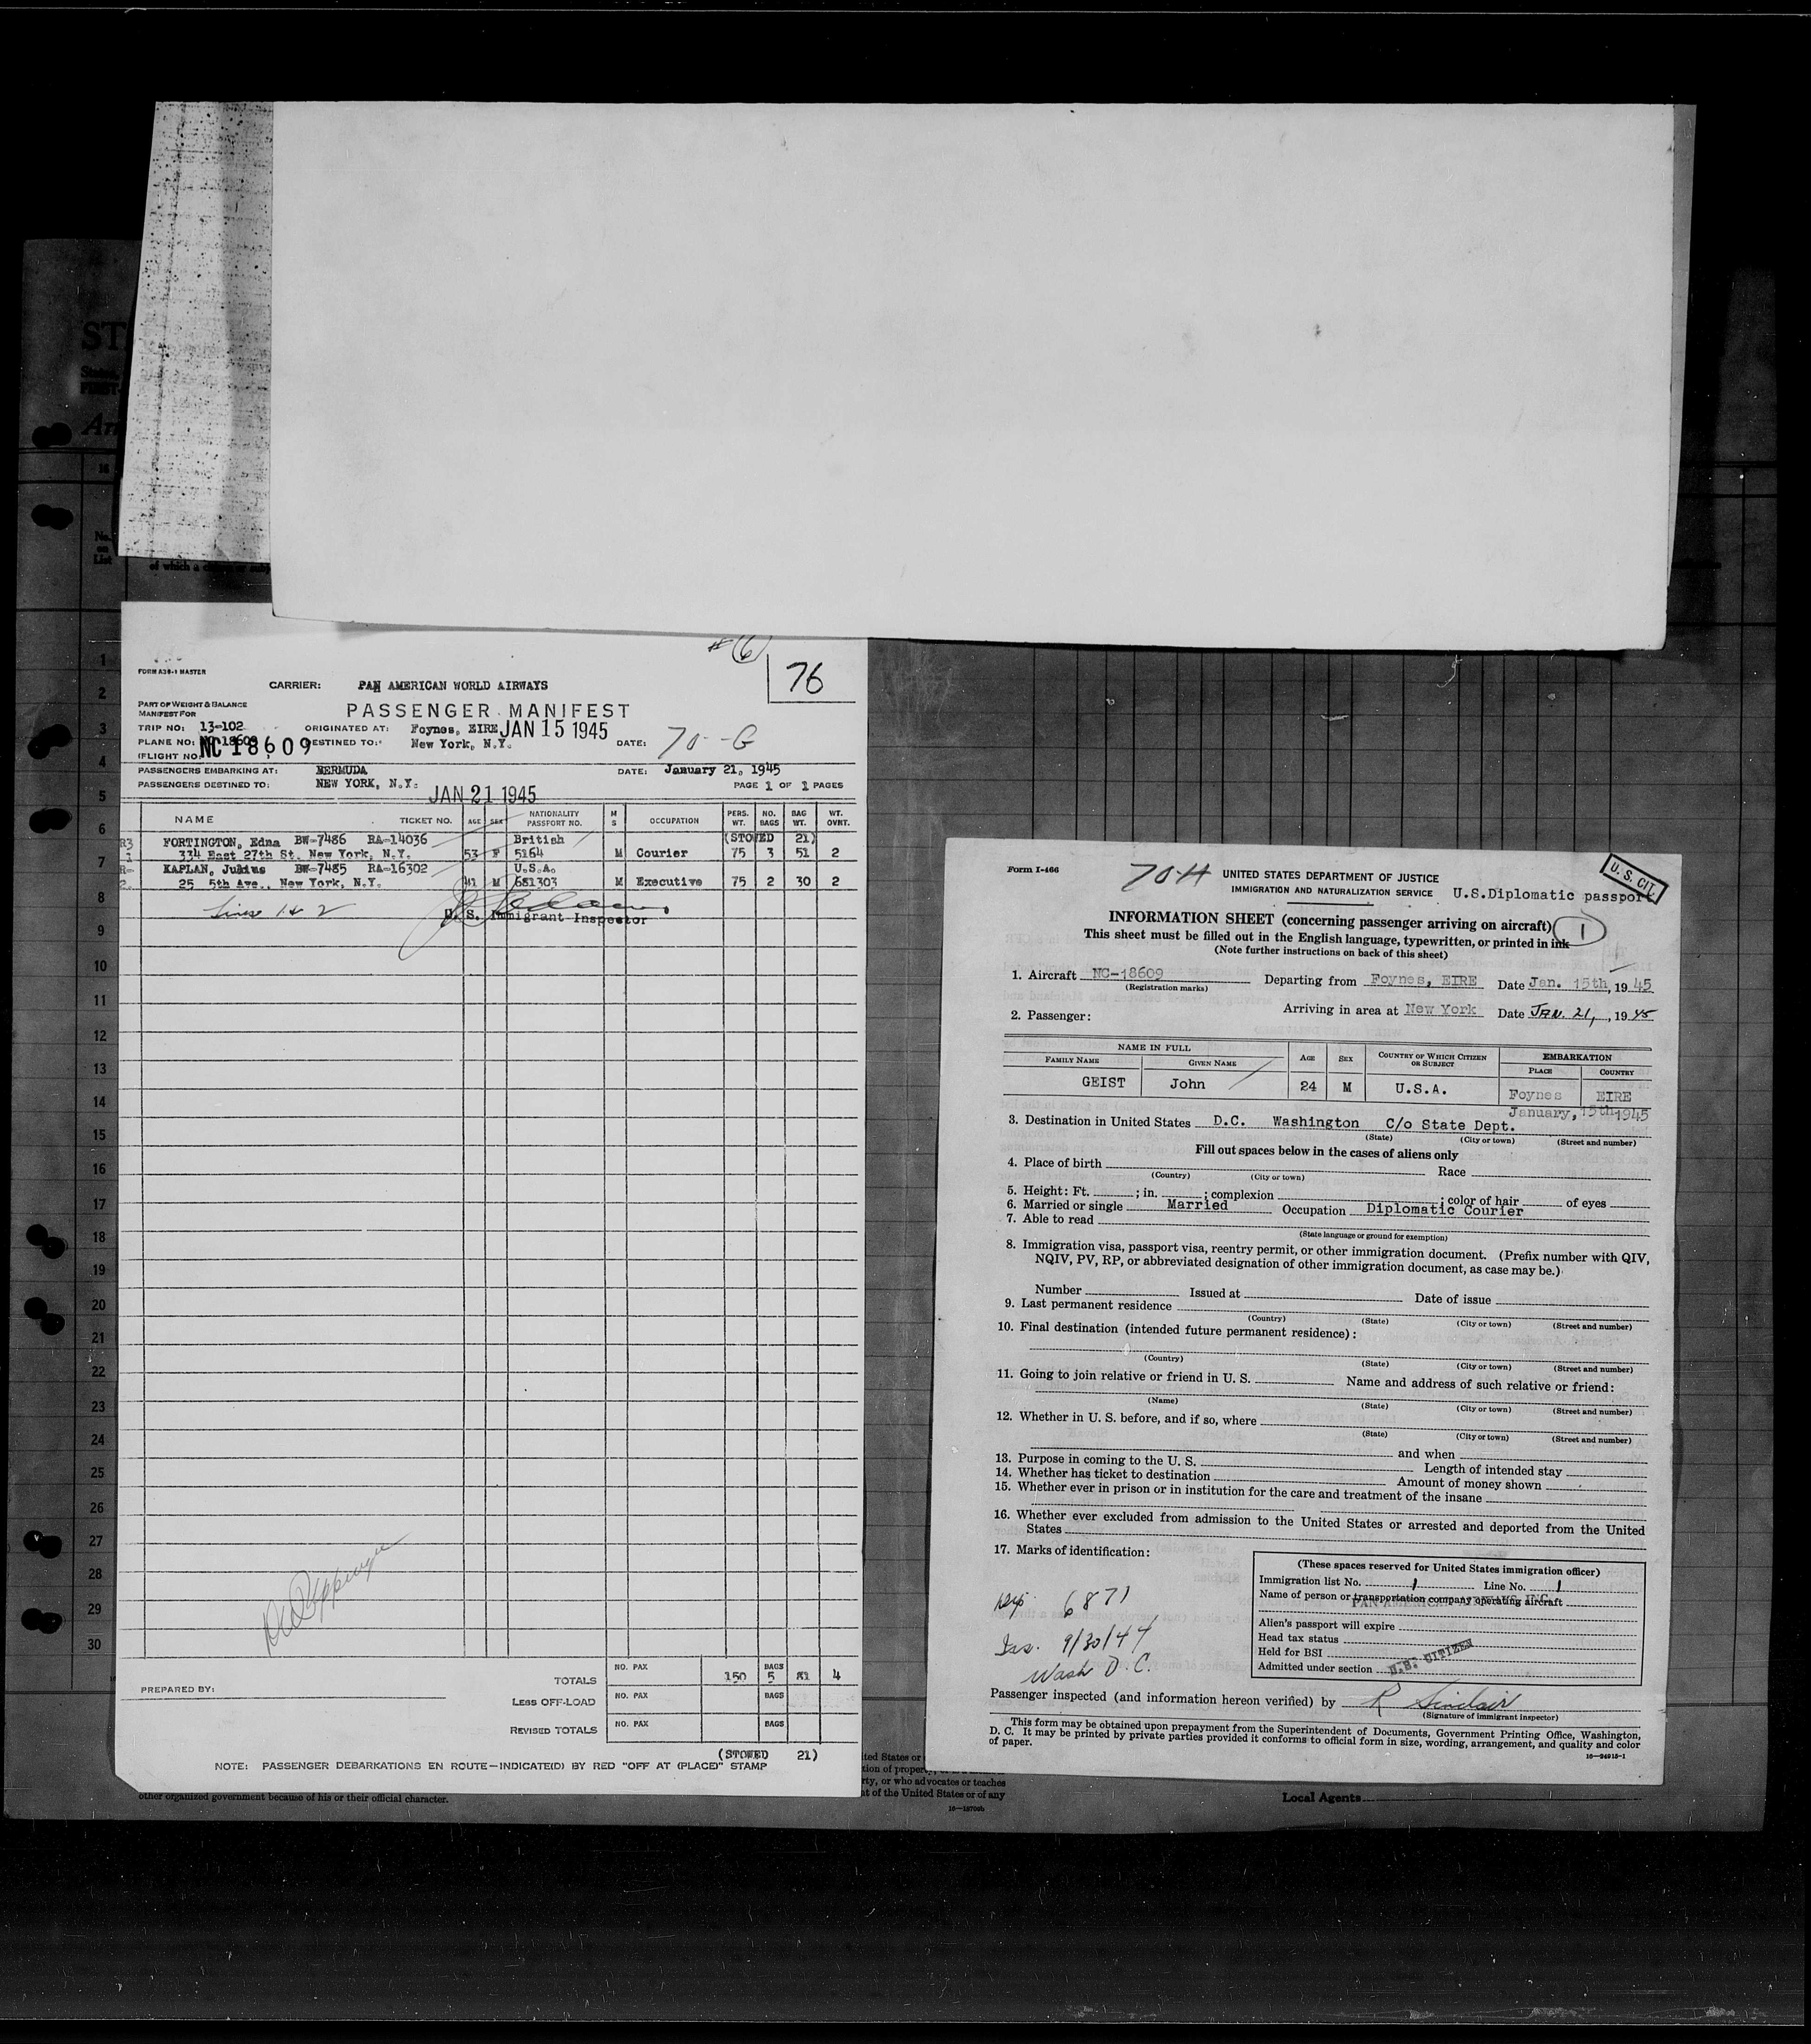 ST
An
16
No.
on
List
of which a
# (6)
76
FORM A38-1 MASTER
CARRIER: PAN AMERICAN WORLD AIRWAYS
PART OF WEIGHT & BALANCE
MANIFEST FOR
PASSENGER MANIFEST
TRIP NO: 13-102 ORIGINATED AT: Foynes, EIRE JAN 15 1945
PLANE NO: NC 18609 DESTINED TO: New York, N.Y. DATE: 70-G
(FLIGHT NO.
PASSENGERS EMBARKING AT: BERMUDA DATE: January 21, 1945
PASSENGERS DESTINED TO: NEW YORK, N.Y. PAGE 1 OF 1 PAGES
JAN 21 1945
NAME TICKET NO. AGE SEX NATIONALITY PASSPORT NO. M S OCCUPATION PERS. WT. NO. BAGS BAG WT. WT. OVNT.
FORTINGTON, Edna BW-7486 RA-14036 British (STOWED 21)
334 East 27th St. New York, N.Y. 53 F 5164 M Courier 75 3 51 2
KAPLAN, Julius BW-7485 RA-16302 U.S.A.
25 5th Ave., New York, N.Y. 41 M 681303 M Executive 75 2 30 2
Lines 1 & 2
U. S. Immigrant Inspector
1
2
3
4
5
6
7
8
9
10
11
12
13
14
15
16
17
18
19
20
21
22
23
24
25
26
27
28
29
30
TOTALS NO. PAX 150 BAGS 5 81 4
PREPARED BY:
LESS OFF-LOAD NO. PAX BAGS
REVISED TOTALS NO. PAX BAGS
(STOWED 21)
NOTE: PASSENGER DEBARKATIONS EN ROUTE—INDICATE(D) BY RED "OFF AT (PLACE)" STAMP
other organized government because of his or their official character.
ited States or
tion of proper
rty, or who advocates or teaches
t of the United States or of any
16—18700b
Local Agents
Form I-466
70H
UNITED STATES DEPARTMENT OF JUSTICE
IMMIGRATION AND NATURALIZATION SERVICE
U.S. CIT.
U.S.Diplomatic passport
INFORMATION SHEET (concerning passenger arriving on aircraft) 1
This sheet must be filled out in the English language, typewritten, or printed in ink
(Note further instructions on back of this sheet)
1. Aircraft NC-18609 Departing from Foynes, EIRE Date Jan. 15th, 1945
(Registration marks)
Arriving in area at New York Date JAN. 21, 1945
2. Passenger:
NAME IN FULL AGE SEX COUNTRY OF WHICH CITIZEN OR SUBJECT EMBARKATION
FAMILY NAME GIVEN NAME PLACE COUNTRY
GEIST John 24 M U.S.A. Foynes EIRE
January, 15th 1945
3. Destination in United States D.C. Washington C/o State Dept.
(State) (City or town) (Street and number)
Fill out spaces below in the cases of aliens only
4. Place of birth Race
(Country) (City or town)
5. Height: Ft. ; in. ; complexion ; color of hair of eyes
6. Married or single Married Occupation Diplomatic Courier
7. Able to read
(State language or ground for exemption)
8. Immigration visa, passport visa, reentry permit, or other immigration document. (Prefix number with QIV,
NQIV, PV, RP, or abbreviated designation of other immigration document, as case may be.)
Number Issued at Date of issue
9. Last permanent residence
(Country) (State) (City or town) (Street and number)
10. Final destination (intended future permanent residence):
(Country) (State) (City or town) (Street and number)
11. Going to join relative or friend in U. S. Name and address of such relative or friend:
(Name) (State) (City or town) (Street and number)
12. Whether in U. S. before, and if so, where
(State) (City or town) (Street and number)
and when
13. Purpose in coming to the U. S. Length of intended stay
14. Whether has ticket to destination Amount of money shown
15. Whether ever in prison or in institution for the care and treatment of the insane
16. Whether ever excluded from admission to the United States or arrested and deported from the United
States
17. Marks of identification:
6871
Iss. 9/30/44
Wash D.C.
(These spaces reserved for United States immigration officer)
Immigration list No. 1 Line No. 1
Name of person or transportation company operating aircraft
PAN AMERICAN AIRWAYS INC.
Alien's passport will expire
Head tax status
Held for BSI
Admitted under section U.S. CITIZEN
Passenger inspected (and information hereon verified) by R Sinclair
(Signature of immigrant inspector)
This form may be obtained upon prepayment from the Superintendent of Documents, Government Printing Office, Washington,
D. C. It may be printed by private parties provided it conforms to official form in size, wording, arrangement, and quality and color
of paper.
16—24915-1